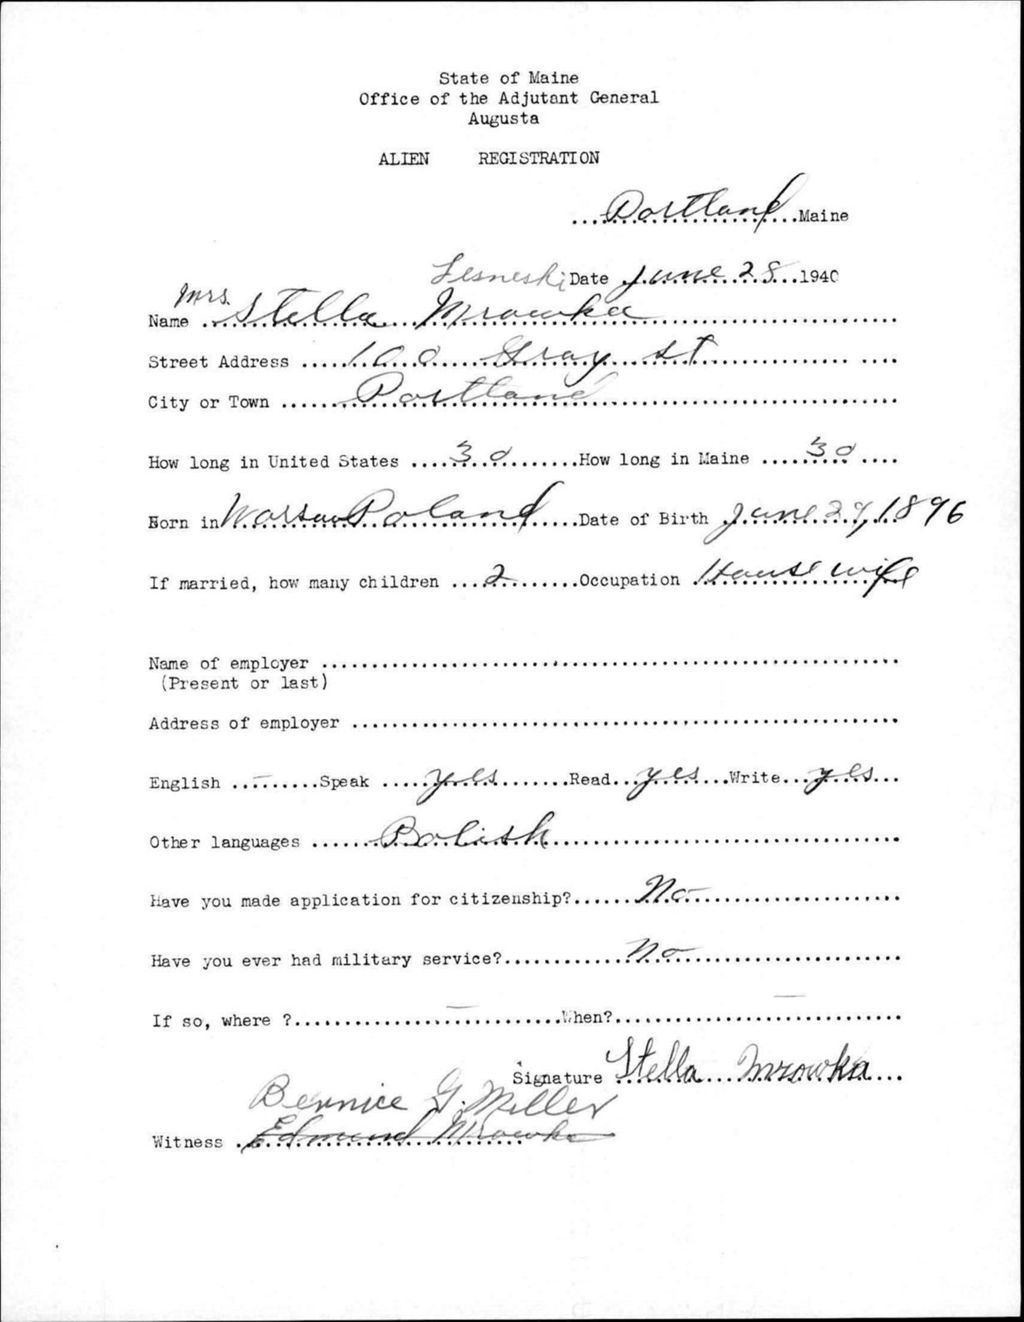 State of Maine
Office of the Adjutant General
Augusta
ALIEN REGISTRATION
Portland Maine
Lesneski Date June 28 1940
Mrs.
Name Stella Mrowka
Street Address 100 Gray St
City or Town Portland
How long in United States 30 How long in Maine 30
Born in Warsaw Poland Date of Birth June 29, 1896
If married, how many children 2 Occupation Housewife
Name of employer
(Present or last)
Address of employer
English — Speak yes Read yes Write yes
Other languages Polish
Have you made application for citizenship? No
Have you ever had military service? No
If so, where ? — When? —
Signature Stella Mrowka
Bernice G. Miller
Witness Edmund Mrowka